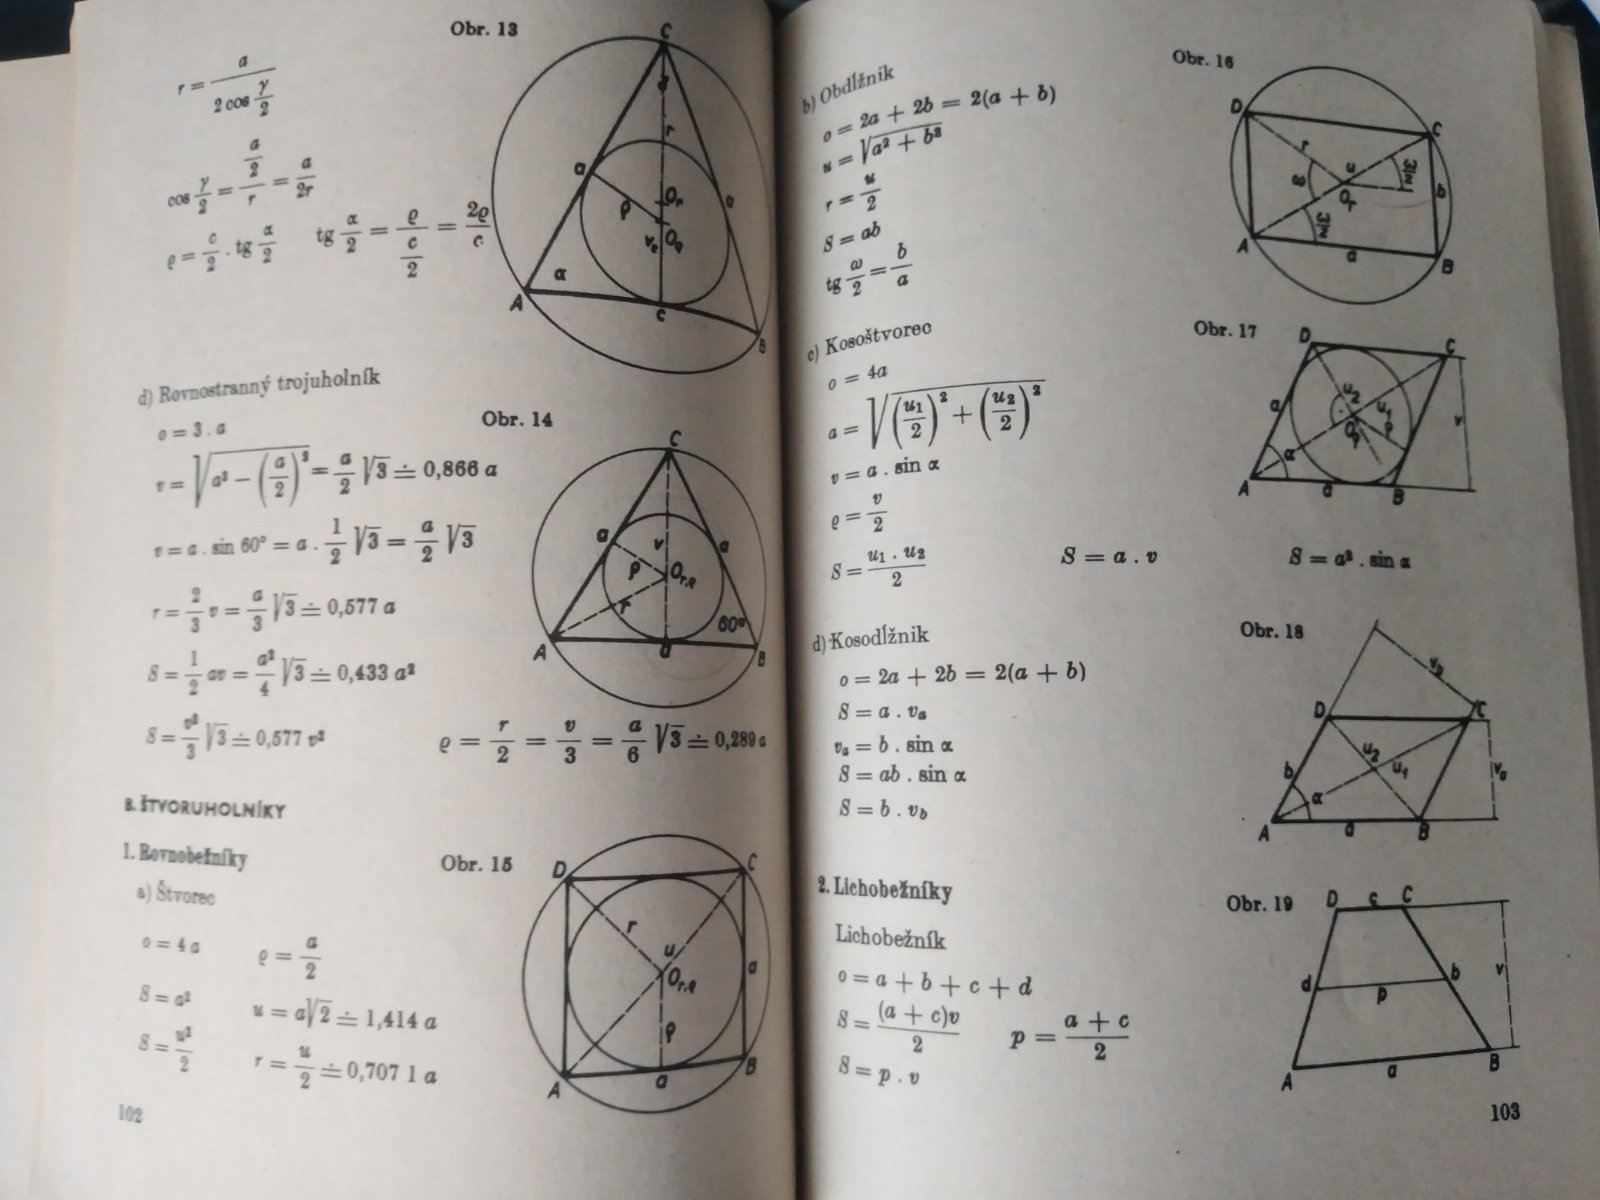 Obr. 13
r = a / (2 cos γ/2)
cos γ/2 = (a/2)/r = a/2r
ϱ = c/2 . tg α/2    tg α/2 = ϱ/(c/2) = 2ϱ/c
C
r
a
ρ
Or
a
Oϱ
α
A
c
B
d) Rovnostranný trojuholník
o = 3 . a
Obr. 14
v = √(a² − (a/2)²) = a/2 √3 ≐ 0,866 a
v = a . sin 60° = a . 1/2 √3 = a/2 √3
r = 2/3 v = a/3 √3 ≐ 0,577 a
S = 1/2 av = a²/4 √3 ≐ 0,433 a²
S = v²/3 √3 ≐ 0,577 v²    ϱ = r/2 = v/3 = a/6 √3 ≐ 0,289 a
C
a
v
a
ρ
Or,ϱ
r
60°
A
a
B
B. ŠTVORUHOLNÍKY
1. Rovnobežníky
Obr. 15
a) Štvorec
o = 4 a    ϱ = a/2
S = a²    u = a√2 ≐ 1,414 a
S = u²/2    r = u/2 ≐ 0,707 1 a
D C
r
u
Or,ϱ
a
ρ
A a B
102
b) Obdĺžnik
Obr. 16
o = 2a + 2b = 2(a + b)
u = √(a² + b²)
r = u/2
S = ab
tg ω/2 = b/a
D C
r
u
ω
ω/2
Or
b
ω/2
A a B
c) Kosoštvorec
Obr. 17
o = 4a
a = √((u₁/2)² + (u₂/2)²)
v = a . sin α
ϱ = v/2
S = u₁ . u₂/2    S = a . v    S = a² . sin α
D C
u₂
a
u₁
v
ρ
Oρ
α
A a B
d) Kosodĺžnik
Obr. 18
o = 2a + 2b = 2(a + b)
S = a . vₐ
vₐ = b . sin α
S = ab . sin α
S = b . v_b
v_b
D C
u₂
b
u₁
vₐ
α
A a B
2. Lichobežníky
Obr. 19
Lichobežník
o = a + b + c + d
S = (a + c)v/2    p = a + c/2
S = p . v
D c C
d
b
v
p
A a B
103